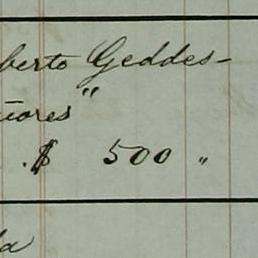 berto Geddes-
ñores"
.$ 500 "
da